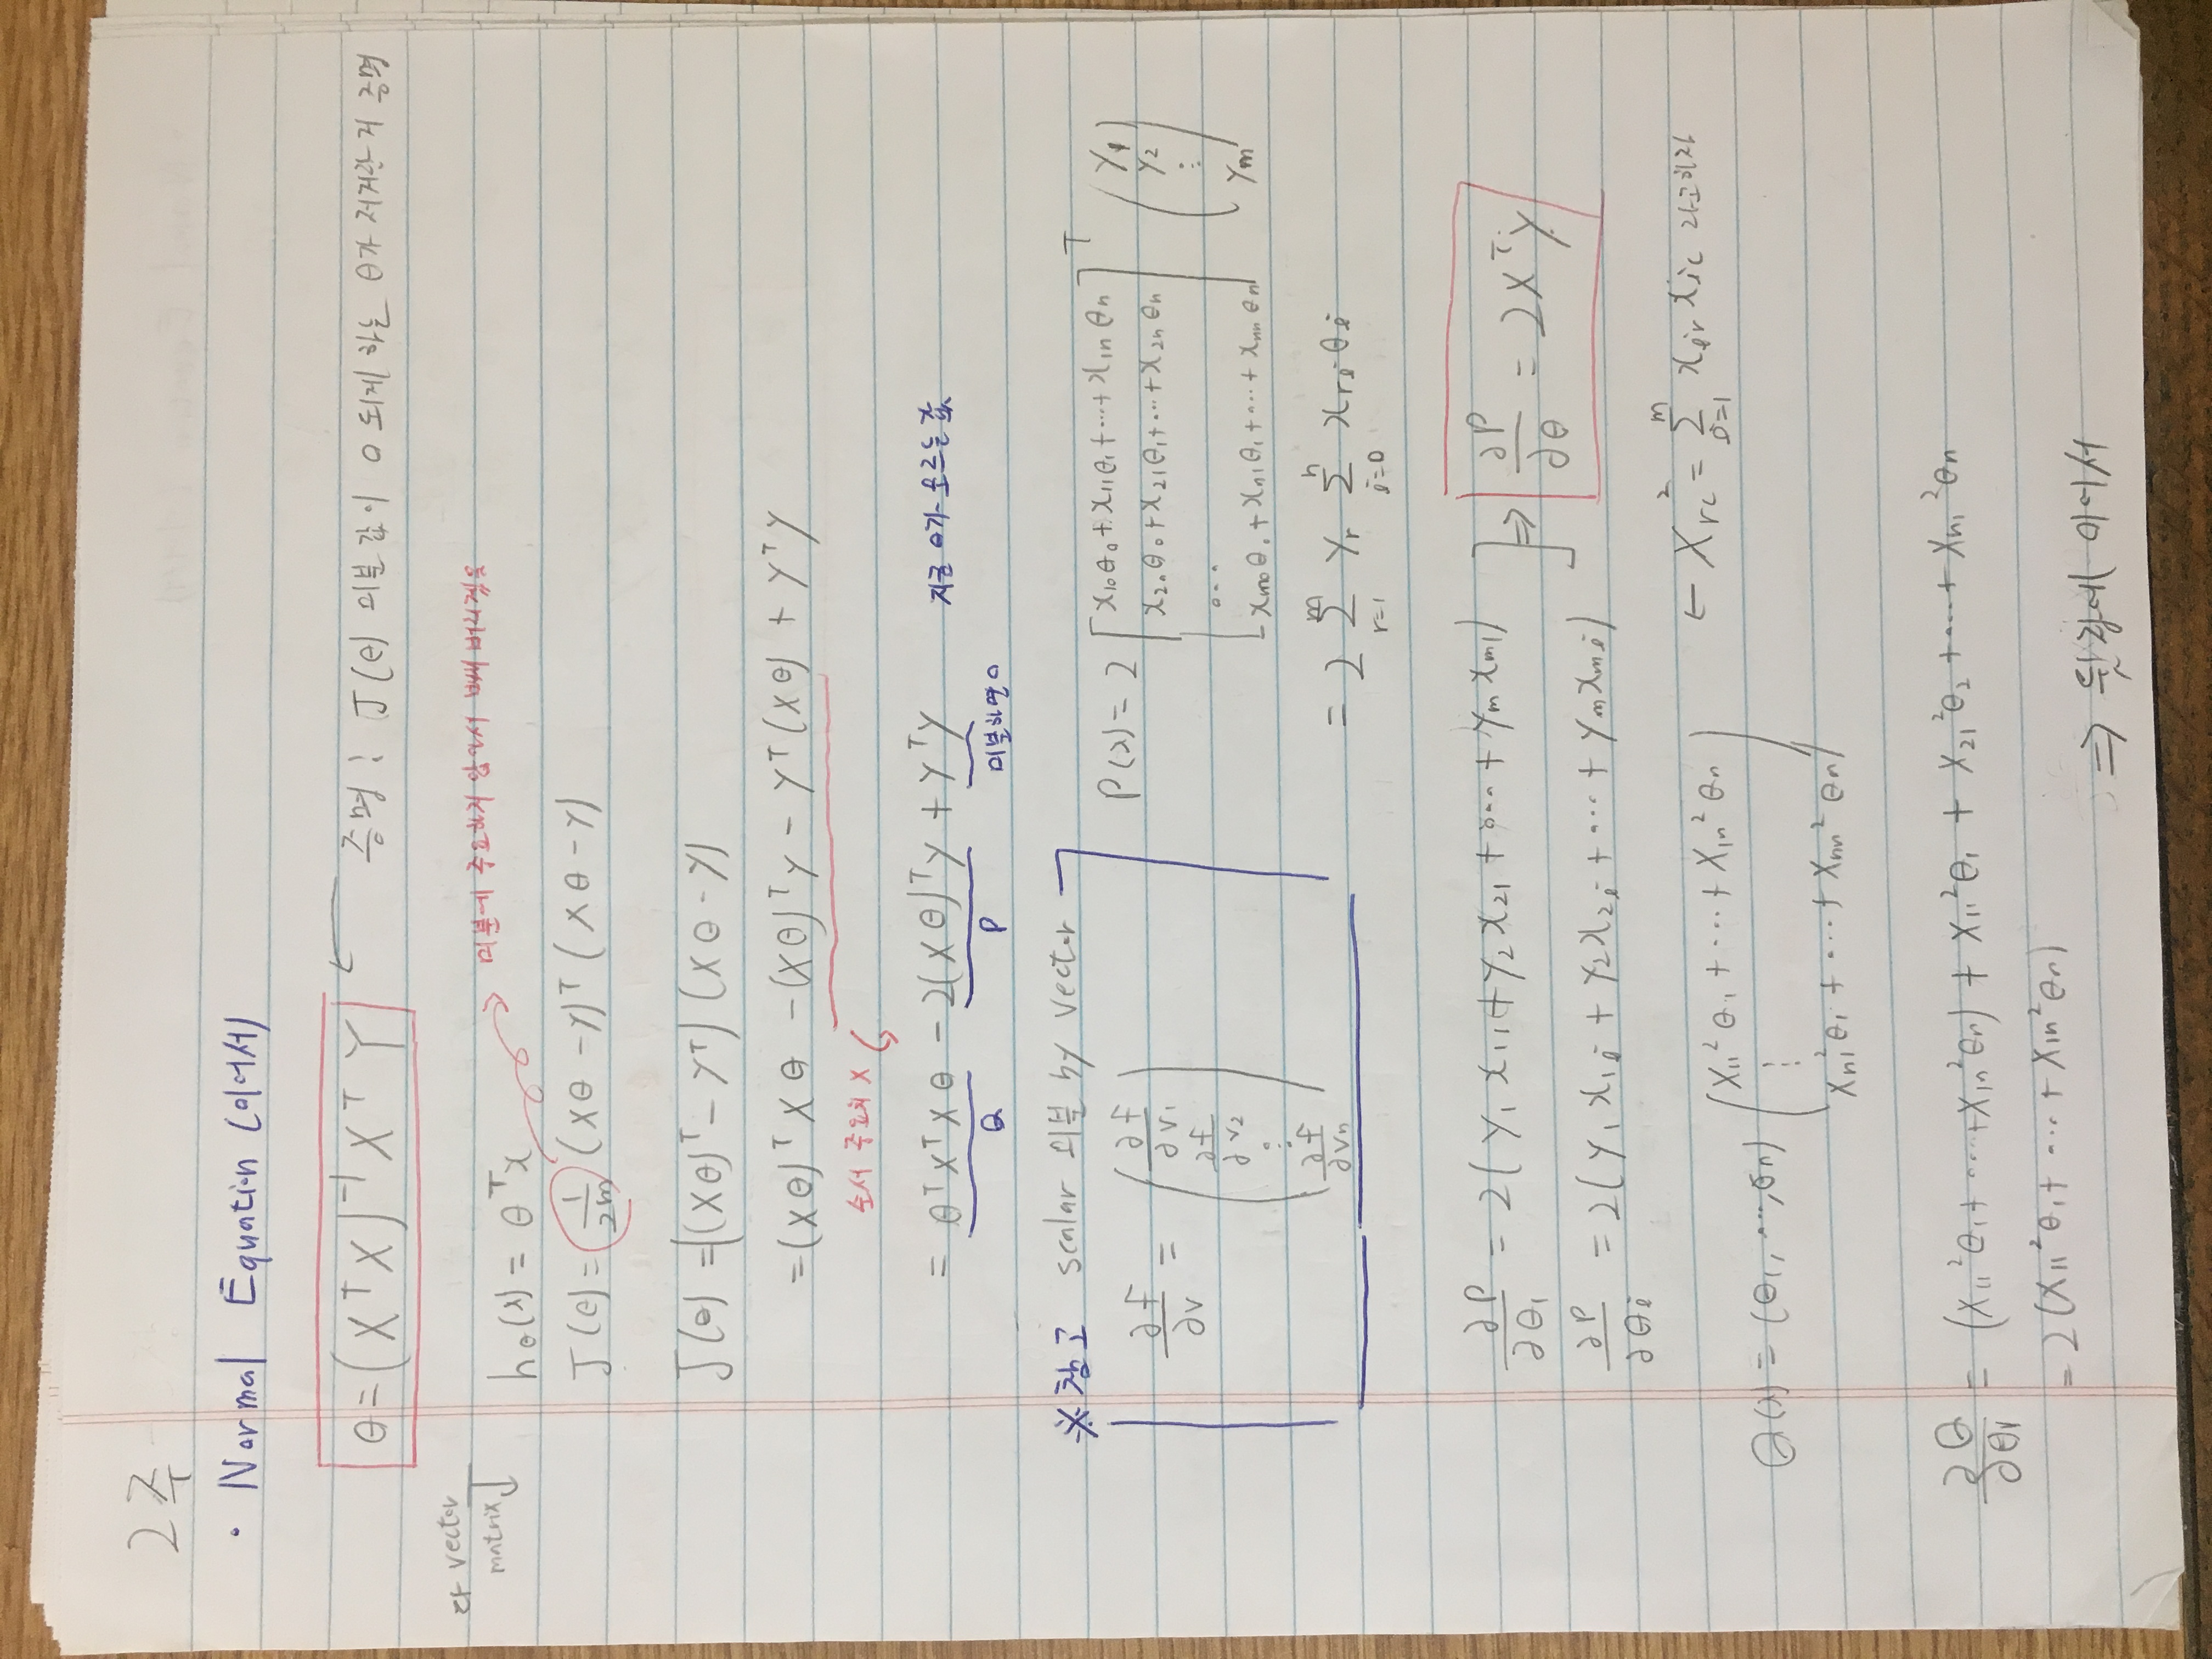 2주
· Normal Equation (이어서)
θ = (XᵀX)⁻¹XᵀY ← 증명 : J(θ) 미분 값이 0 되게 하는 θ가 저거란 거 증명
다 vector
matrix ↓
미분에 중요하지 않아서 빼 버리겠음
hθ(x) = θᵀx
J(θ) = 1/2m (Xθ - y)ᵀ (Xθ - y)
J(θ) = ((Xθ)ᵀ - yᵀ) (Xθ - y)
= (Xθ)ᵀXθ - (Xθ)ᵀy - yᵀ(Xθ) + yᵀy
순서 중요치 X
= θᵀXᵀXθ - 2(Xθ)ᵀy + yᵀy 지금 θ가 모르는 값
Q P 미분하면 0
※ 참고 scalar 미분 by vector
∂f/∂v = (∂f/∂v₁
∂f/∂v₂
⋮
∂f/∂vn)
P(x) = 2 [x₁₀θ₀ + x₁₁θ₁ + ··· + x₁nθn
x₂₀θ₀ + x₂₁θ₁ + ··· + x₂nθn
...
xm₀θ₀ + xn₁θ₁ + ··· + xnnθn]ᵀ (y₁
y₂
⋮
ym)
= 2 Σ(r=1, m) yr Σ(i=0, n) xriθi
∂P/∂θ₁ = 2(y₁x₁₁ + y₂x₂₁ + ··· + ymxm₁)
∂P/∂θi = 2(y₁x₁i + y₂x₂i + ··· + ymxmi)
] ⇒ ∂P/∂θ = 2Xᵀy
← Xrc² = Σ(i=1, m) xir xic 라고하자
Q(x) = (θ₁, ···, θn) (X₁₁²θ₁ + ··· + X₁n²θn
⋮
Xn₁²θ₁ + ··· + Xnn²θn)
∂Q/∂θ₁ = (X₁₁²θ₁ + ··· + X₁n²θn) + X₁₁²θ₁ + X₂₁²θ₂ + ··· + Xn₁²θn
= 2(X₁₁²θ₁ + ··· + X₁n²θn)
⇒ 뒷장에 이어서